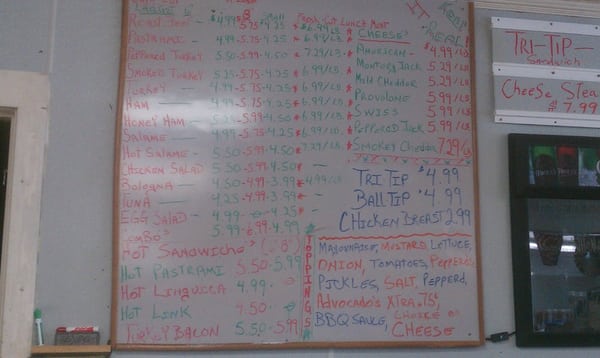 6" 8" Small Fresh Cut Lunch Meat
Roast Beef - $4.99 5.75 4.25 $6.99/LB
Pastrami - 4.99-5.75-4.25 6.99/LB
Peppered Turkey 5.50-5.99-4.50 7.29/LB
Smoked Turkey 5.25-5.75-4.25 6.99/LB
Turkey - 4.99-5.75-4.25 6.99/LB
Ham - 4.99-5.75-4.25 6.99/LB
Honey Ham - 5.25-5.99-4.50 6.99/LB
Salame - 4.99-5.75-4.25 6.99/LB
Hot Salame - 5.50-5.99-4.50 7.29/LB
Chicken Salad 5.50-5.99-4.50 -
Bologna - 4.50-4.99-3.99 4.99/LB
Tuna - 4.25-4.99-3.99 -
Egg Salad - 4.99- -4.25 -
Combo's 5.99-6.99-4.99
Hot Sandwiche's (6" 8")
Hot Pastrami 5.50-5.99
Hot Linguica 4.99-
Hot Link 4.50-
Turkey Bacon 5.50-5.99
Cheese's
American $4.99/LB
Monterey Jack 5.29/LB
Mild Cheddar 5.29/LB
Provolone 5.99/LB
Swiss 5.99/LB
Peppered Jack 5.99/LB
Smokey Cheddar 7.29/LB
Tri Tip $4.99
Ball Tip $4.99
Chicken Breast 2.99
Toppings
Mayonnaise, Mustard Lettuce,
Onion, Tomatoes, Pepperoni's
Pickles, Salt, Pepperd,
Advocado's Xtra .75¢,
BBQ Sauce, Choice of
Cheese
Tri-Tip-
Sandwich
Cheese Stea
$7.99